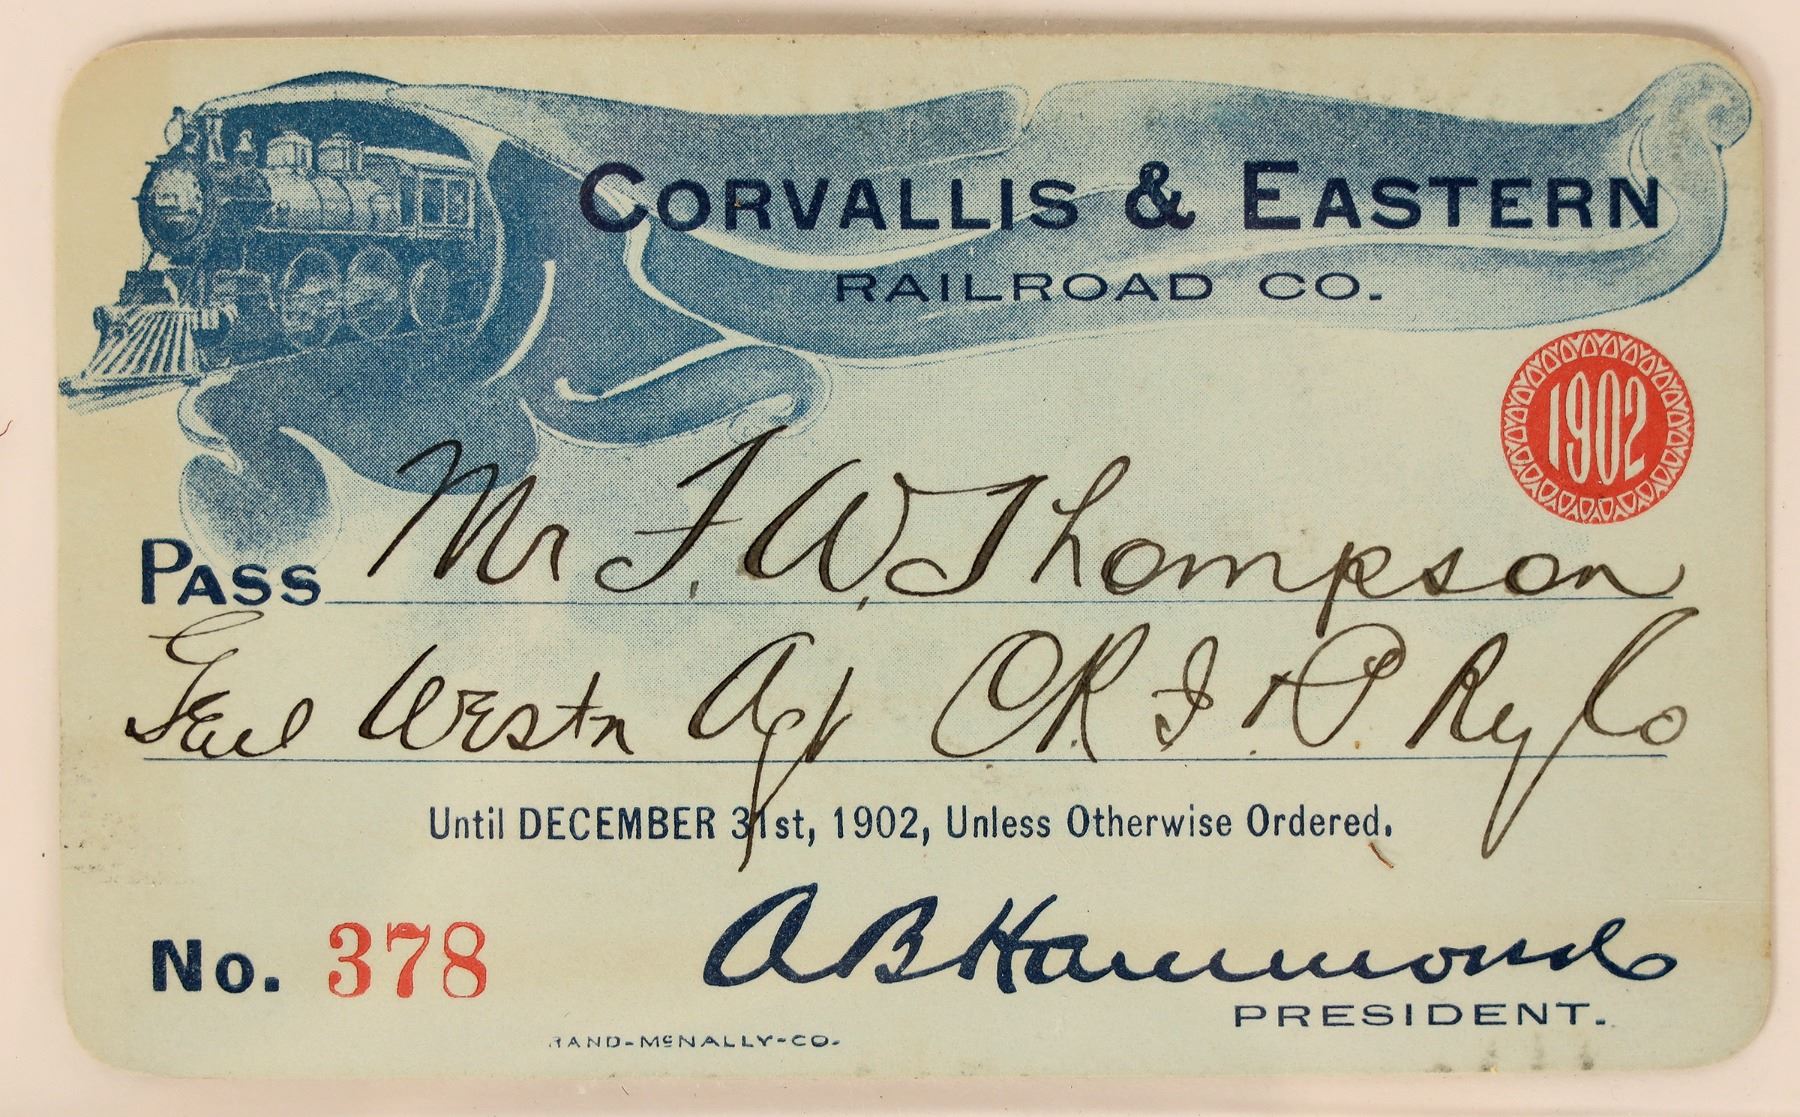 CORVALLIS & EASTERN
RAILROAD CO.
1902
PASS Mr F. W. Thompson
Genl Westn Agt C.R.I. & P. Ry Co
Until DECEMBER 31st, 1902, Unless Otherwise Ordered.
No. 378
A B Hammond
PRESIDENT.
RAND-McNALLY-CO.